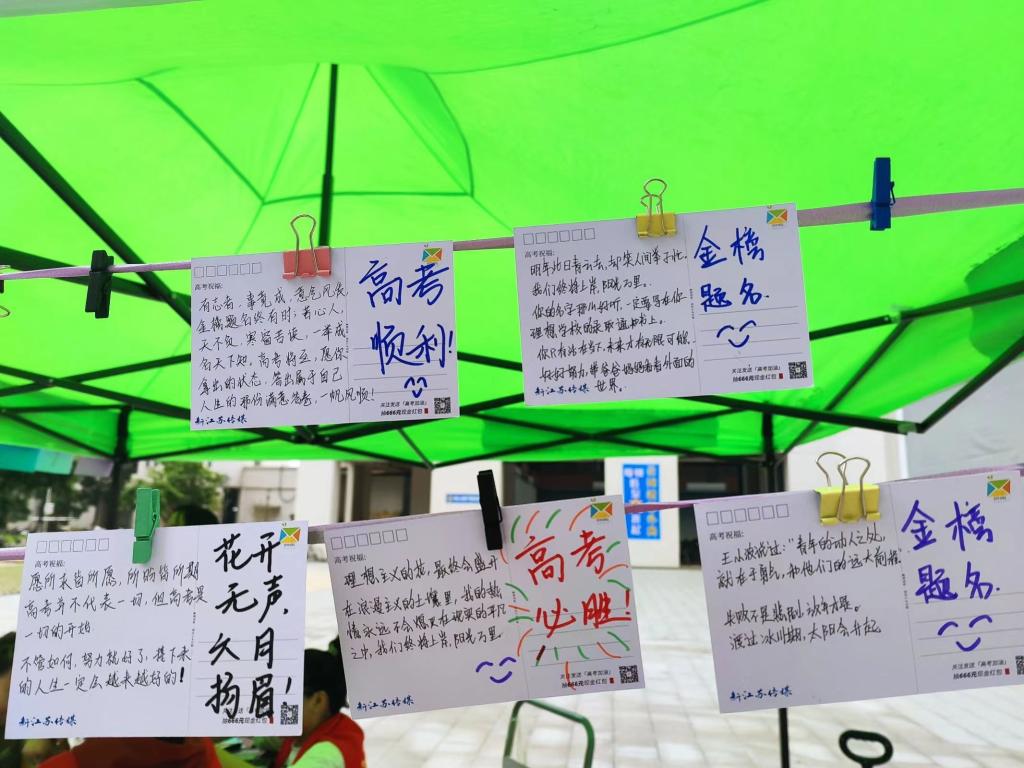 高考祝福:
有志者，事竟成，意气风发
金榜题名终有时；苦心人，
天不负，寒窗苦读，一举成
名天下知，高考将至，愿你
拿出的状态，答出属于自己
人生的那份满意答卷，一帆风顺！
新江苏传媒
高考
顺利！
关注发送「高考加油」
抽666元现金红包
高考祝福:
明年此日青云去，却笑人间举子忙
我们终将上岸，阳光万里。
你的名字那么好听，一定要写在你
理想学校的录取通知书上。
你只有活在当下，未来才有无限可能
好好努力，带爸爸妈妈看看外面的
世界。
新江苏传媒
金榜
题名.
关注发送「高考加油」
抽666元现金红包
高考祝福:
愿所求皆所愿，所盼皆所期
高考并不代表一切，但高考是
一切的开始
不管如何，努力就好了，接下来
的人生一定会越来越好的！
新江苏传媒
花开
无声，
久月
扬眉！
抽666元现金红包
高考祝福:
理想主义的花，最终会盛开
在浪漫主义的土壤里，我的热
情永远不会熄灭在现实的平凡
之中，我们终将上岸，阳光万里。
新江苏传媒
高考
必胜！
关注发送「高考加油」
抽666元现金红包
高考祝福:
王小波说过：“青年的动人之处，
就在于勇气，和他们的远大前程.
失败不是悲剧，放弃才是。
渡过冰川期，太阳会升起
新江苏传媒
金榜
题名.
关注发送「高考加油」
抽666元现金红包